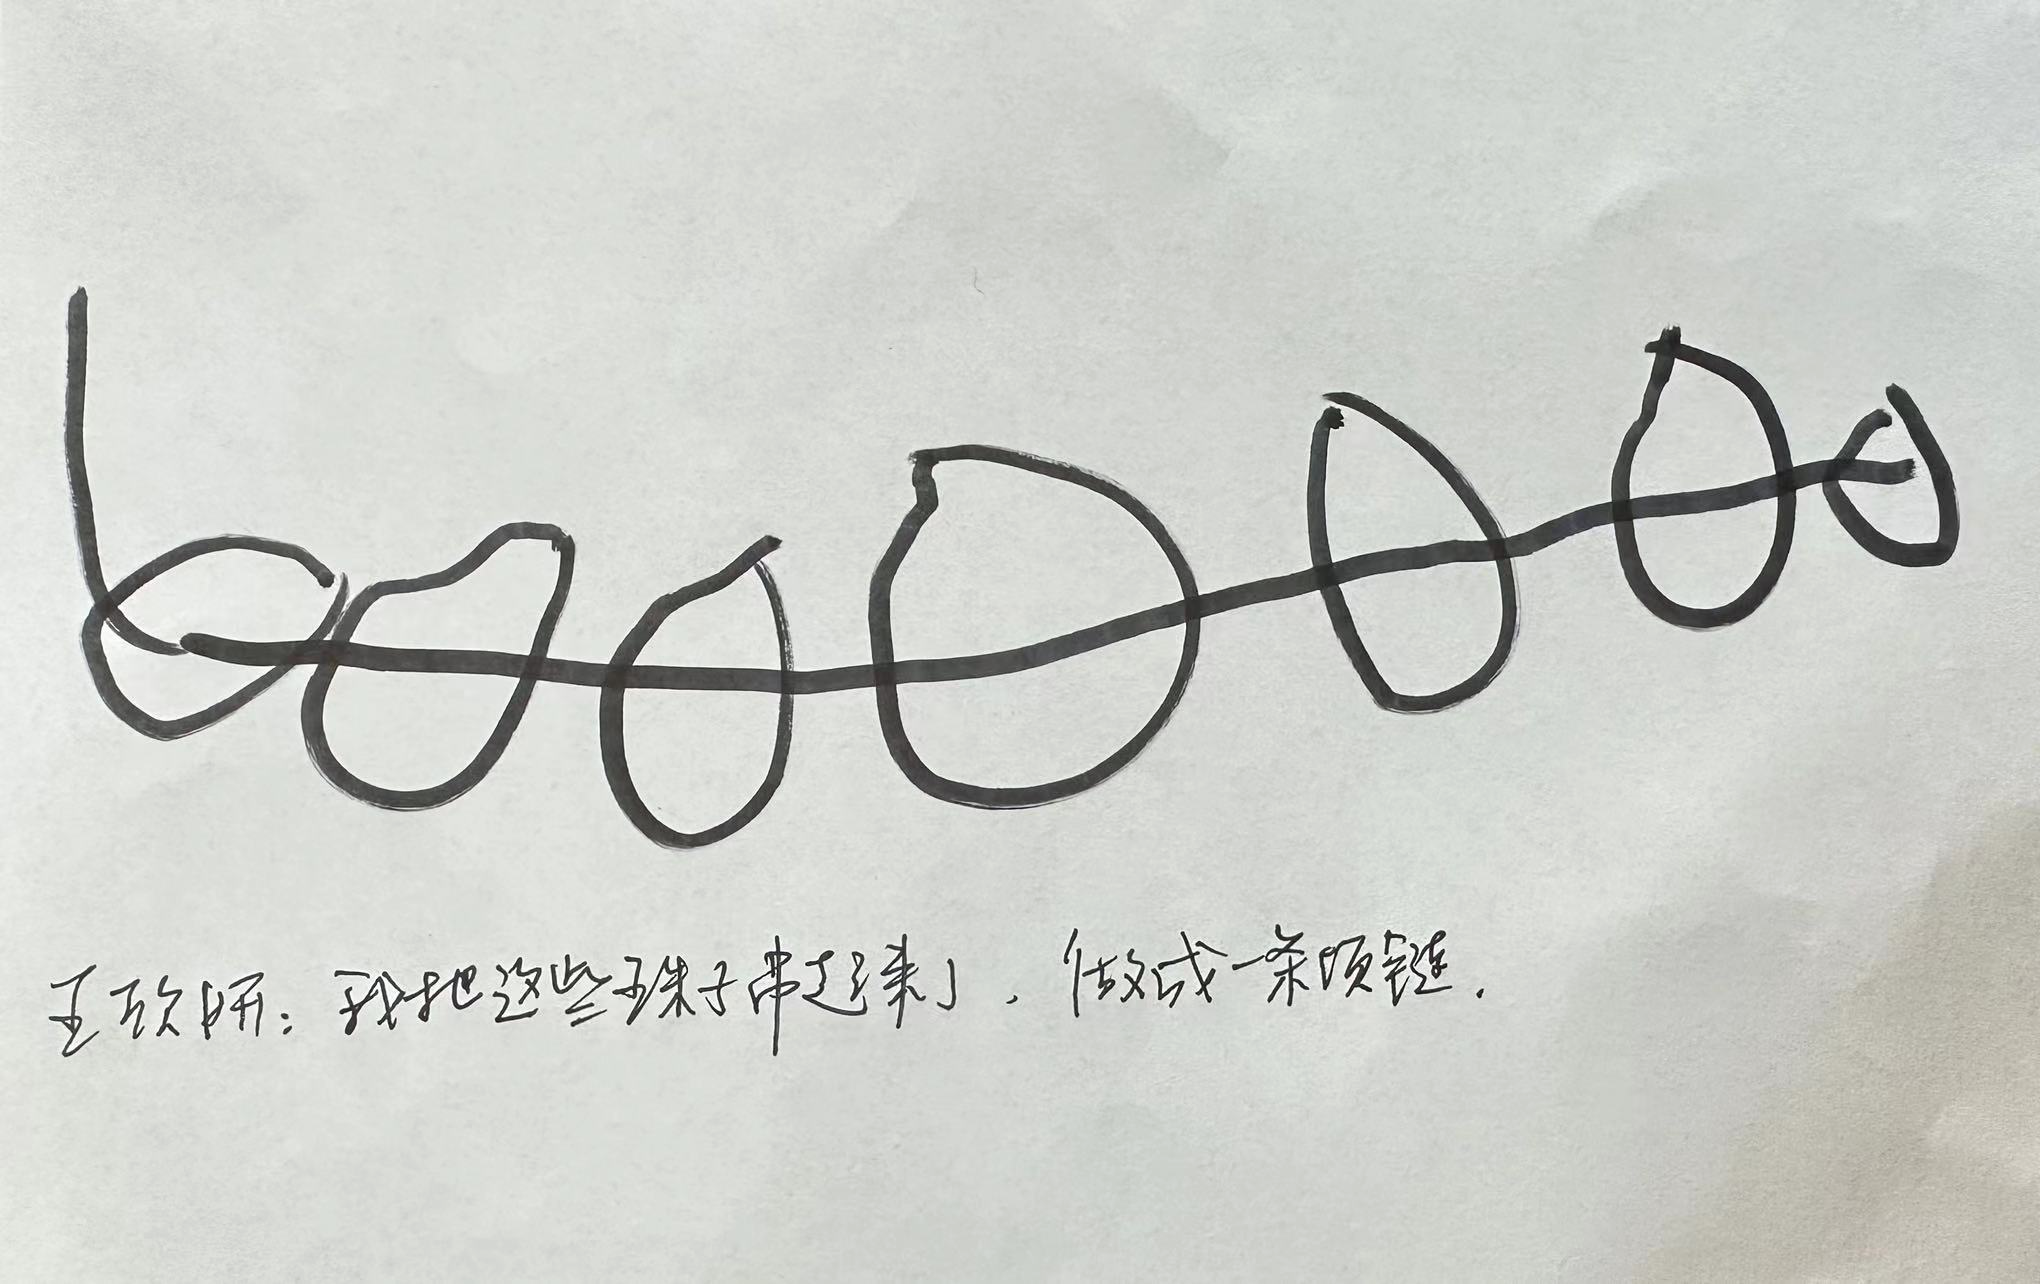 王欣妍：我把这些珠子带起来了，做成一条项链．